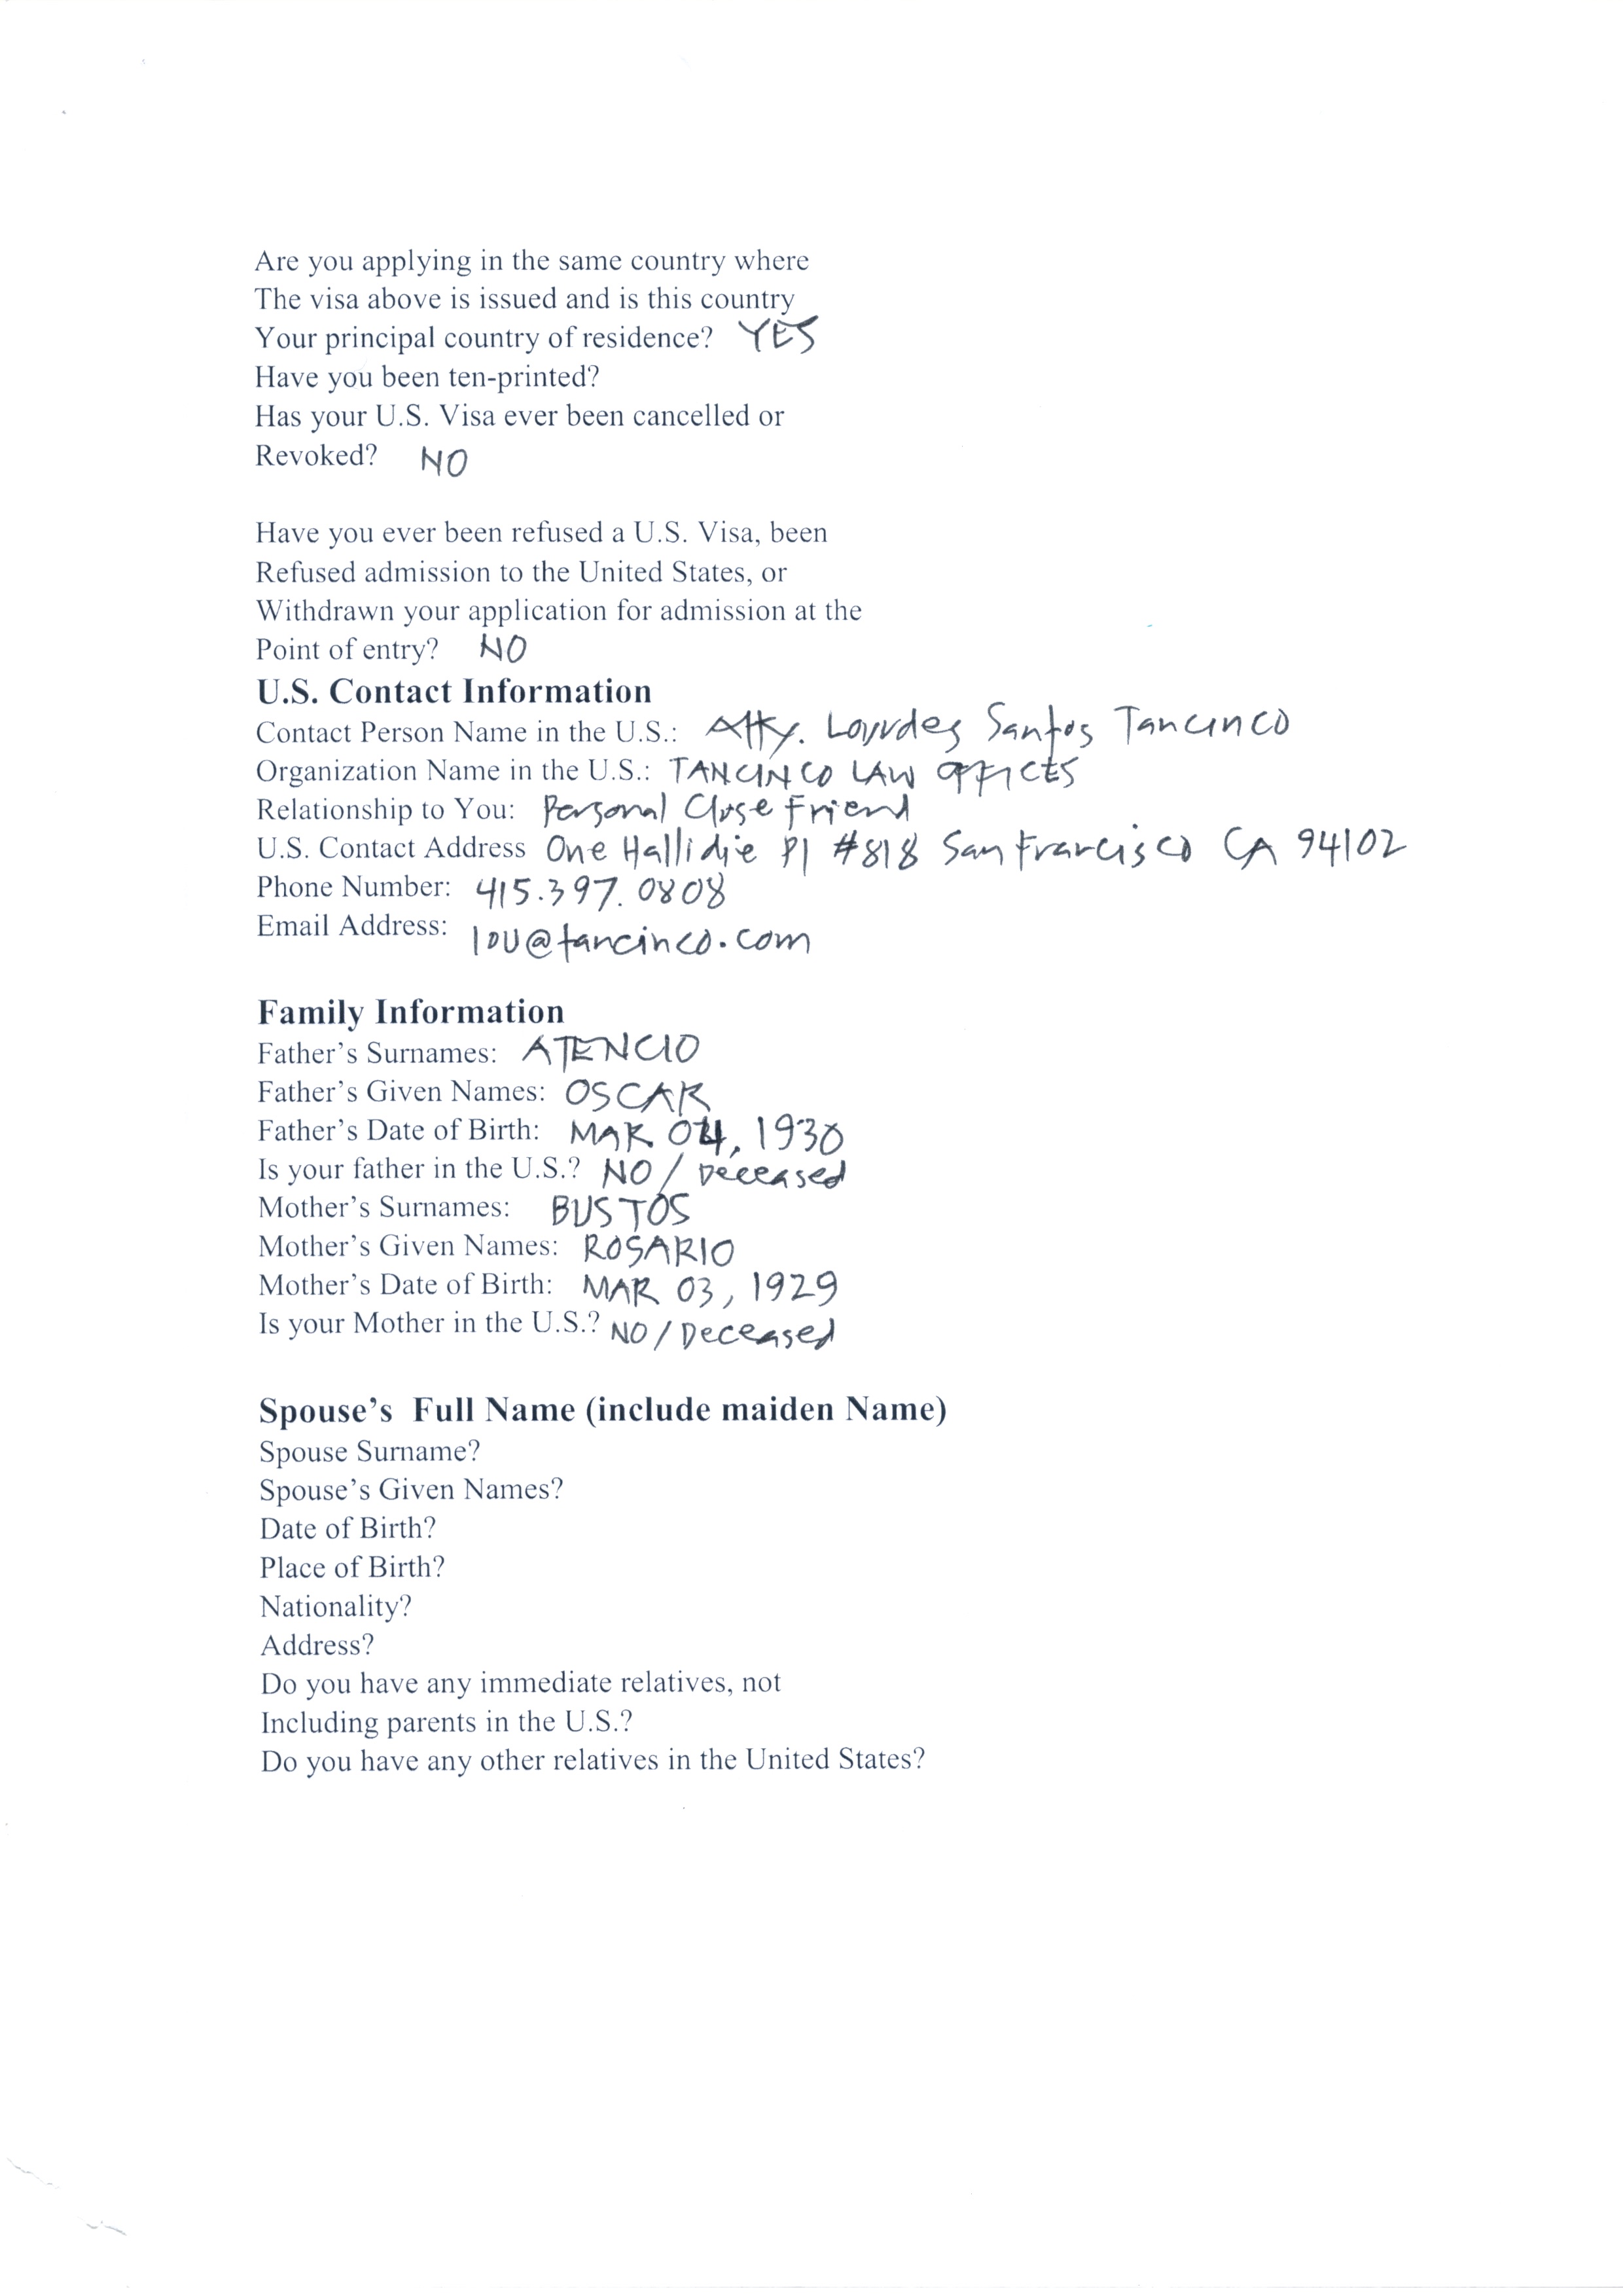 Are you applying in the same country where
The visa above is issued and is this country
Your principal country of residence? YES
Have you been ten-printed?
Has your U.S. Visa ever been cancelled or
Revoked? NO
Have you ever been refused a U.S. Visa, been
Refused admission to the United States, or
Withdrawn your application for admission at the
Point of entry? NO
U.S. Contact Information
Contact Person Name in the U.S.: Atty. Lourdes Santos Tancinco
Organization Name in the U.S.: TANCINCO LAW OFFICES
Relationship to You: Personal Close Friend
U.S. Contact Address One Hallidie Pl #818 San Francisco CA 94102
Phone Number: 415.397.0808
Email Address: lou@tancinco.com
Family Information
Father's Surnames: ATENCIO
Father's Given Names: OSCAR
Father's Date of Birth: MAR 04, 1930
Is your father in the U.S.? NO / Deceased
Mother's Surnames: BUSTOS
Mother's Given Names: ROSARIO
Mother's Date of Birth: MAR 03, 1929
Is your Mother in the U.S.? NO / Deceased
Spouse's Full Name (include maiden Name)
Spouse Surname?
Spouse's Given Names?
Date of Birth?
Place of Birth?
Nationality?
Address?
Do you have any immediate relatives, not
Including parents in the U.S.?
Do you have any other relatives in the United States?